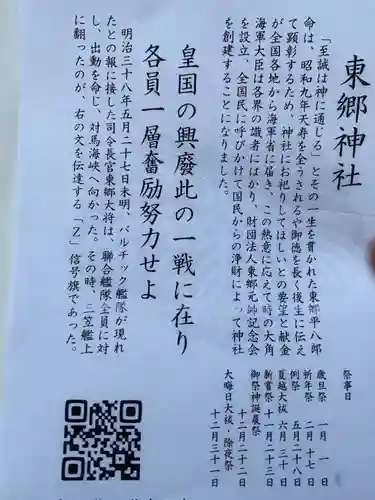 東郷神社
「至誠は神に通じる」とその一生を貫かれた東郷平八郎
命は、昭和九年天寿を全うされるや御徳を長く後生に伝え
て顕彰するため、神社にお祀りしてほしいとの要望と献金
が全国各地から海軍省に届き、この熱意に応えて時の大角
海軍大臣は各界の識者にはかり、財団法人東郷元帥記念会
を設立、全国民に呼びかけて国民からの浄財によって神社
を創建することになりました。
皇国の興廃此の一戦に在り
各員一層奮励努力せよ
明治三十八年五月二十七日未明、バルチック艦隊が現れ
たとの報に接した司令長官東郷大将は、聯合艦隊全員に対
し、出動を命じ、対馬海峡へ向かった。その時、三笠艦上
に翻ったのが、右の文を伝達する「Z」信号旗であった。
祭事日
歳旦祭 一月一日
祈年祭 二月十七日
例祭 五月二十八日
夏越大祓 六月三十日
新嘗祭 十一月二十三日
御祭神誕晨祭
十二月二十二日
大晦日大祓・除夜祭
十二月三十一日